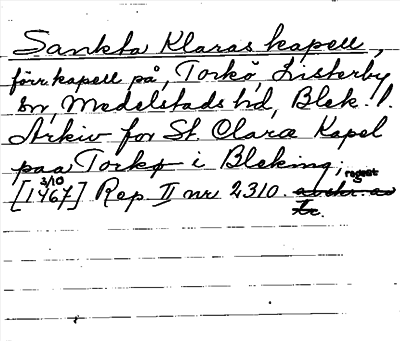 Sankta Klaras kapell,
förr kapell på Torkö, Listerby
sn, Medelstads hd, Blek. l.
Arkiv for St Claræ Kapel
paa Torkø i Bleking; regest
[1467 3/10] Rep. II nr 2310. avskr. av
tr.